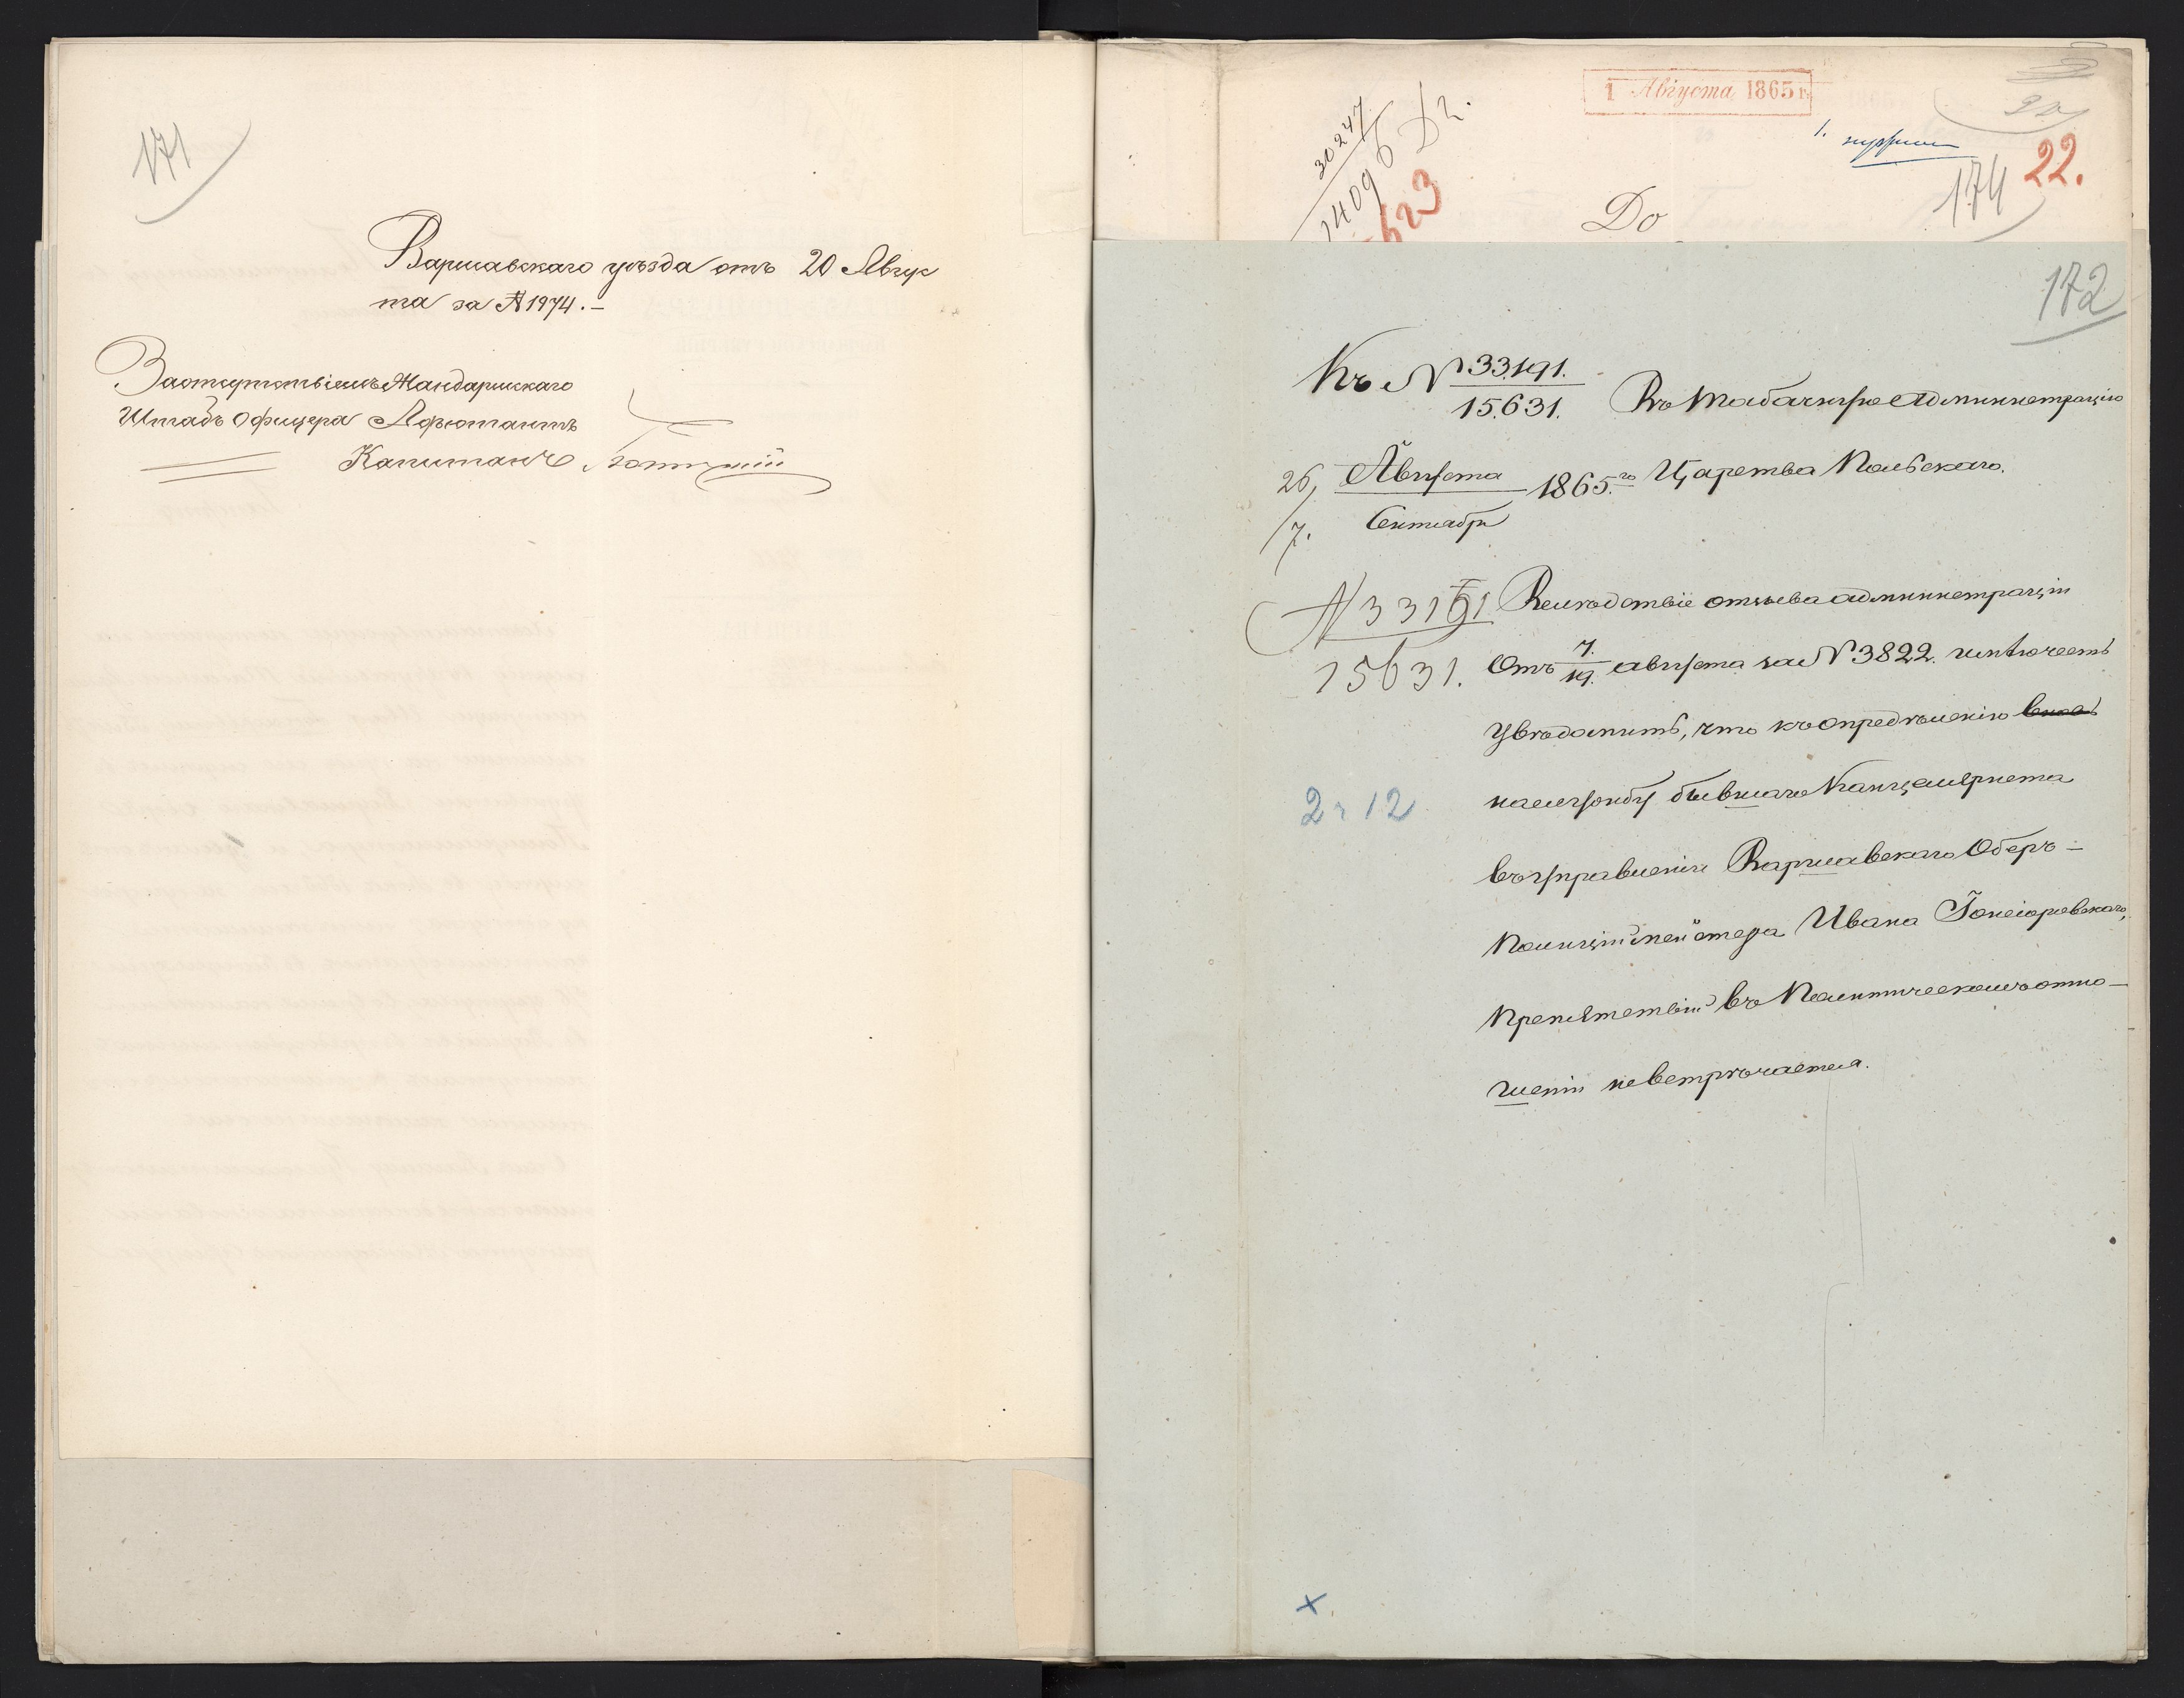 171
Варшавскаго уѣзда отъ 20 Авгус
та за № 1974. –
За отсутствіемъ Жандармскаго
Штабъ Офицера Адъютантъ
Капитанъ
1 Августа 1865 г.
30247
1409
623
22.
174
До
172
Къ № 33.191.
15.631.
Въ Табачную Администрацію
26/7. Августа
Сентября 1865 го
Царства Польскаго.
№ 33191
15631.
Вслѣдствіе отзыва администраціи
Отъ 7./19. августа за № 3822. имѣю честь
увѣдомить, что къ опредѣленію вновь
на службу бывшаго Канцеляриста
въ управленіи Варшавскаго Оберъ –
Полиціймейстера Ивана
препятствій въ Политическомъ отно –
шеніи не встрѣчается.
2 ч 12